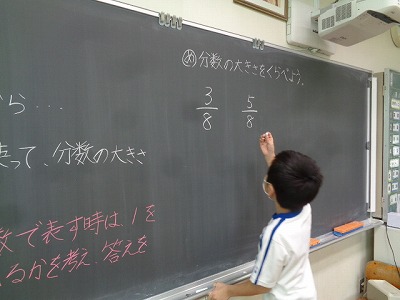 め分数の大きさをくらべよう。
3/8 5/8
ら…
って、分数の大きさ
数で表す時は、1を
るかを考え 答えを